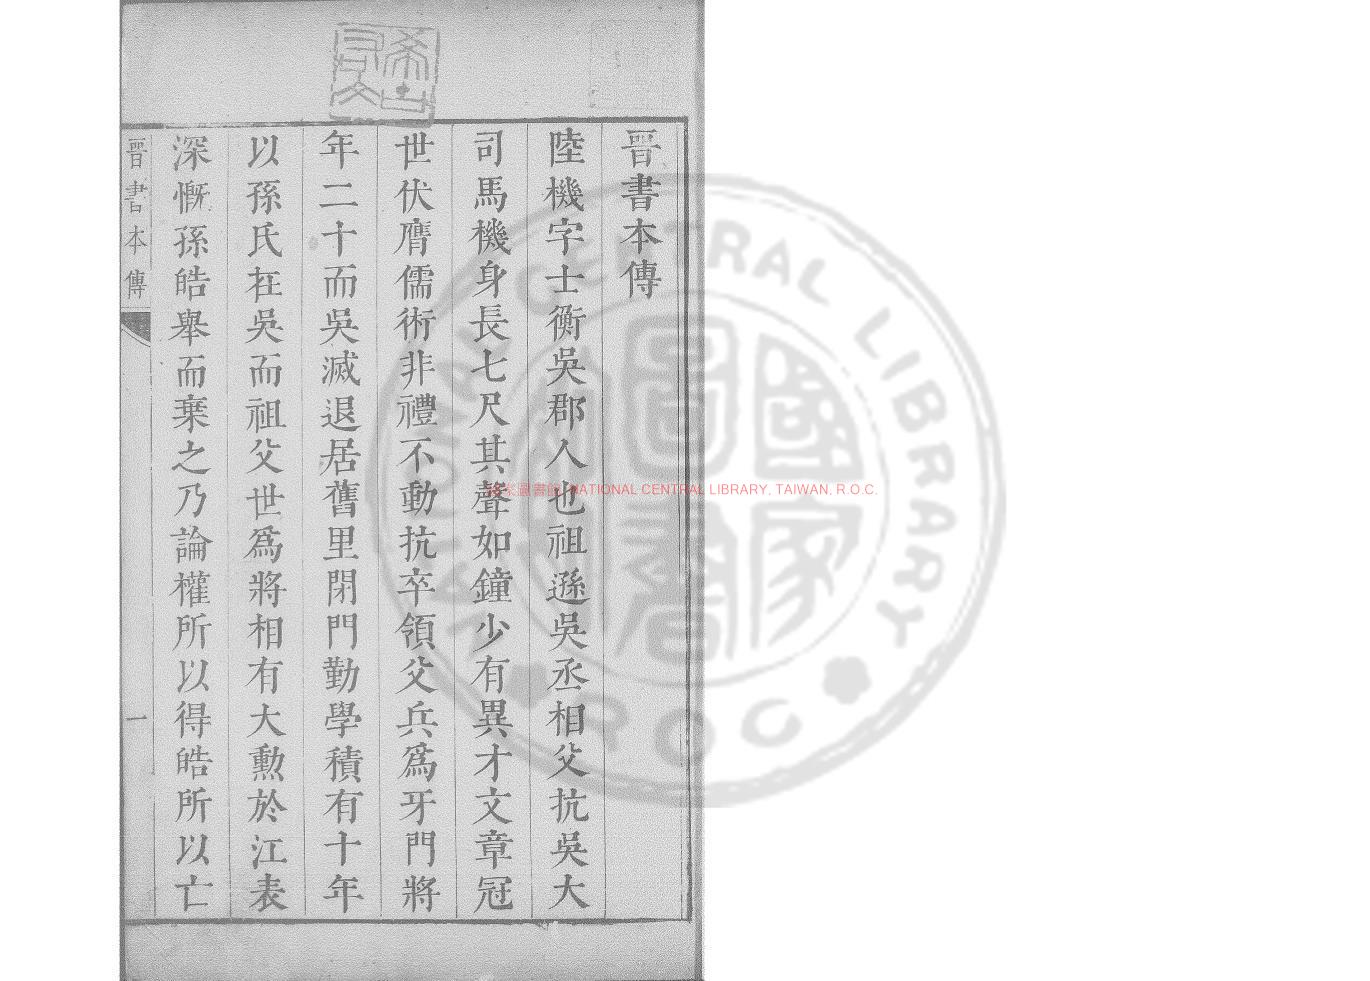 晉書本傳
陸機字士衡吳郡人也祖遜吳丞相父抗吳大
司馬機身長七尺其聲如鐘少有異才文章冠
世伏膺儒術非禮不動抗卒領父兵爲牙門將
年二十而吳滅退居舊里閉門勤學積有十年
以孫氏在吳而祖父世爲將相有大勲於江表
深慨孫皓舉而棄之乃論權所以得皓所以亡
晉書本傳
一
國家圖書館 NATIONAL CENTRAL LIBRARY, TAIWAN, R.O.C.
NATIONAL CENTRAL LIBRARY
R O C
國家圖書館